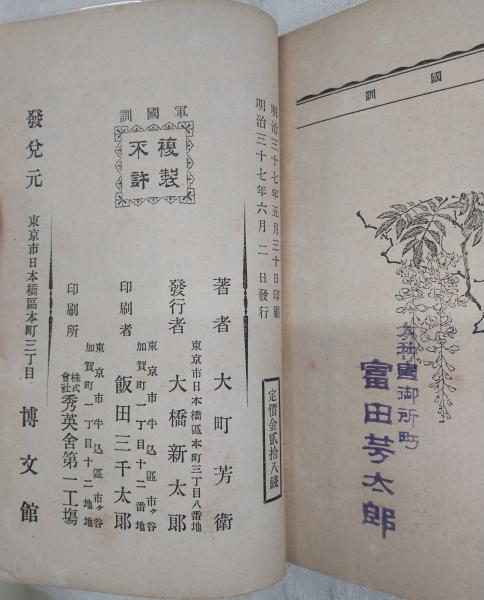 國
訓
大和國御所町
富田芳太郎
明治三十七年五月三十日印刷
明治三十七年六月二日發行
定價金貳拾八錢
軍國訓
複製
不許
著者 大町芳衛
東京市日本橋區本町三丁目八番地
發行者 大橋新太郎
東京市牛込區市ヶ谷
加賀町一丁目十二番地
印刷者 飯田三千太郎
東京市牛込區市ヶ谷
加賀町一丁目十二番地
印刷所 株式會社 秀英舍第一工塲
發兌元 東京市日本橋區本町三丁目 博文館